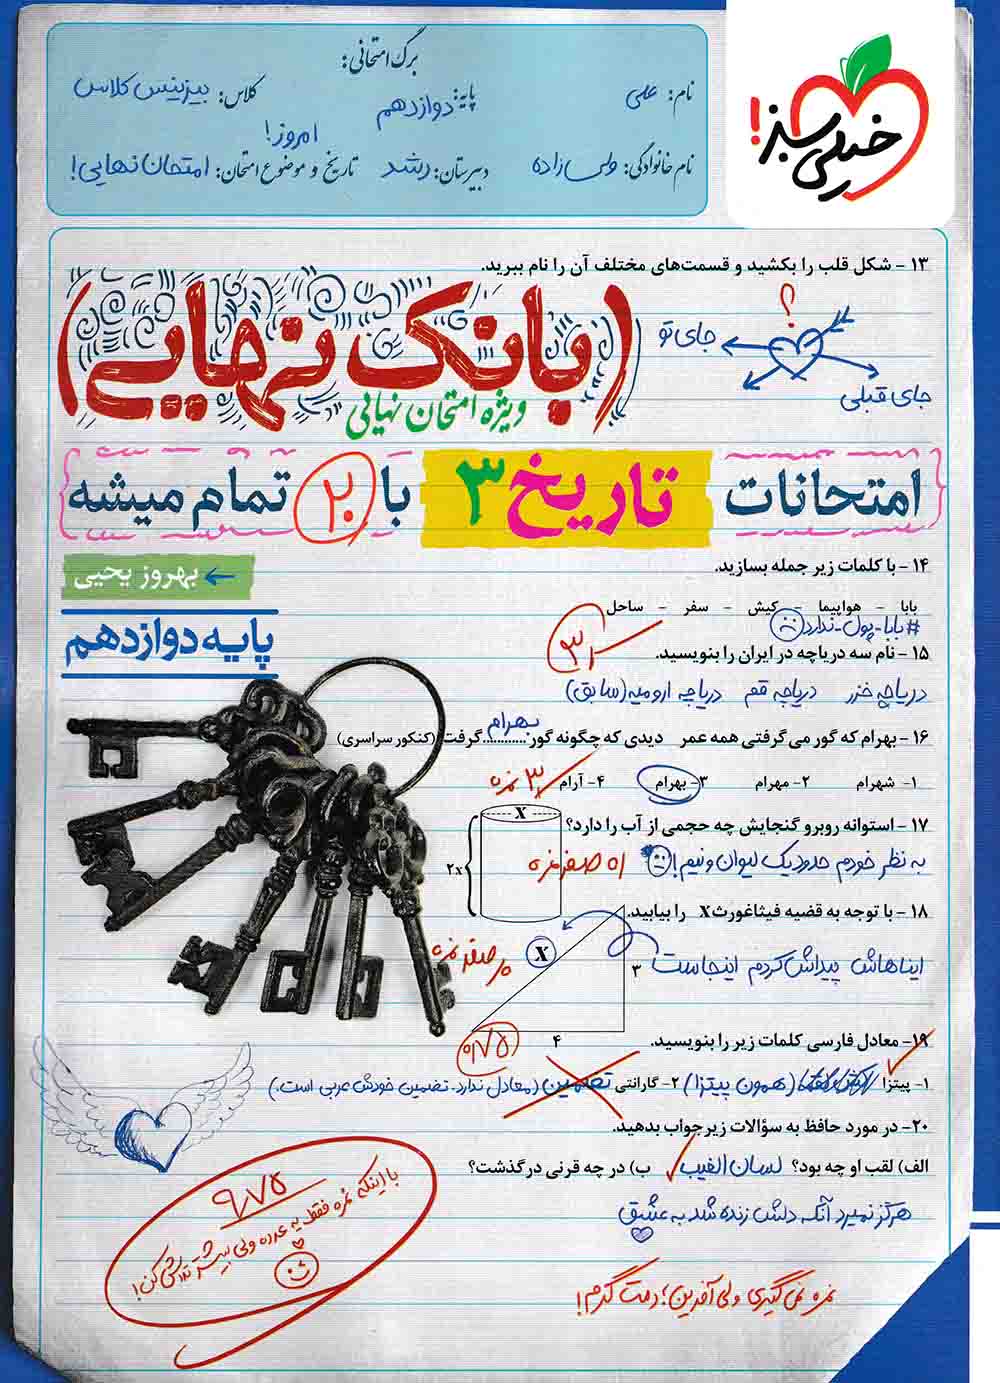 برگ امتحانی:
نام: علی
پایه: دوازدهم
کلاس: بیزینس کلاس
نام خانوادگی: ولی زاده
دبیرستان: رشد
تاریخ و موضوع امتحان: امروز! امتحان نهایی!
خیلی سبز!
۱۳ - شکل قلب را بکشید و قسمت‌های مختلف آن را نام ببرید.
؟
جای تو
جای قبلی
(بانک نهایی)
ویژه امتحان نهایی
امتحانات تاریخ ۳ با ۲۰ تمام میشه
بهروز یحیی
پایه دوازدهم
۱۴ - با کلمات زیر جمله بسازید.
بابا - هواپیما - کیش - سفر - ساحل
#بابا-پول-ندارد
۱۵ - نام سه دریاچه در ایران را بنویسید.
دریاچه خزر دریاچه قم دریاچه ارومیه (سابق)
۱۶ - بهرام که گور می‌گرفتی همه عمر دیدی که چگونه گور ...بهرام... گرفت (کنکور سراسری)
۱- شهرام ۲- مهرام ۳- بهرام ۴- آرام
۱۷ - استوانه روبرو گنجایش چه حجمی از آب را دارد؟
x
۲x
به نظر خودم حدود یک لیوان و نیم!
۱۸ - با توجه به قضیه فیثاغورث X را بیابید.
X
ایناهاش پیداش کردم اینجاست
۳
۴
صفر نمره
۱۹- معادل فارسی کلمات زیر را بنویسید.
۱- پیتزا (همون پیتزا) ۲- گارانتی تضمین (معادل ندارد. تضمین خودش عربی است.)
۲۰- در مورد حافظ به سؤالات زیر جواب بدهید.
الف) لقب او چه بود؟ لسان الغیب ب) در چه قرنی درگذشت؟
هرگز نمیرد آنکه دلش زنده شد به عشق
نمره نمی‌گیری ولی آفرین؛ دمت گرم!
۹٫۷۵
با اینکه نمره فقط یه عدده ولی بیشتر تلاش کن!